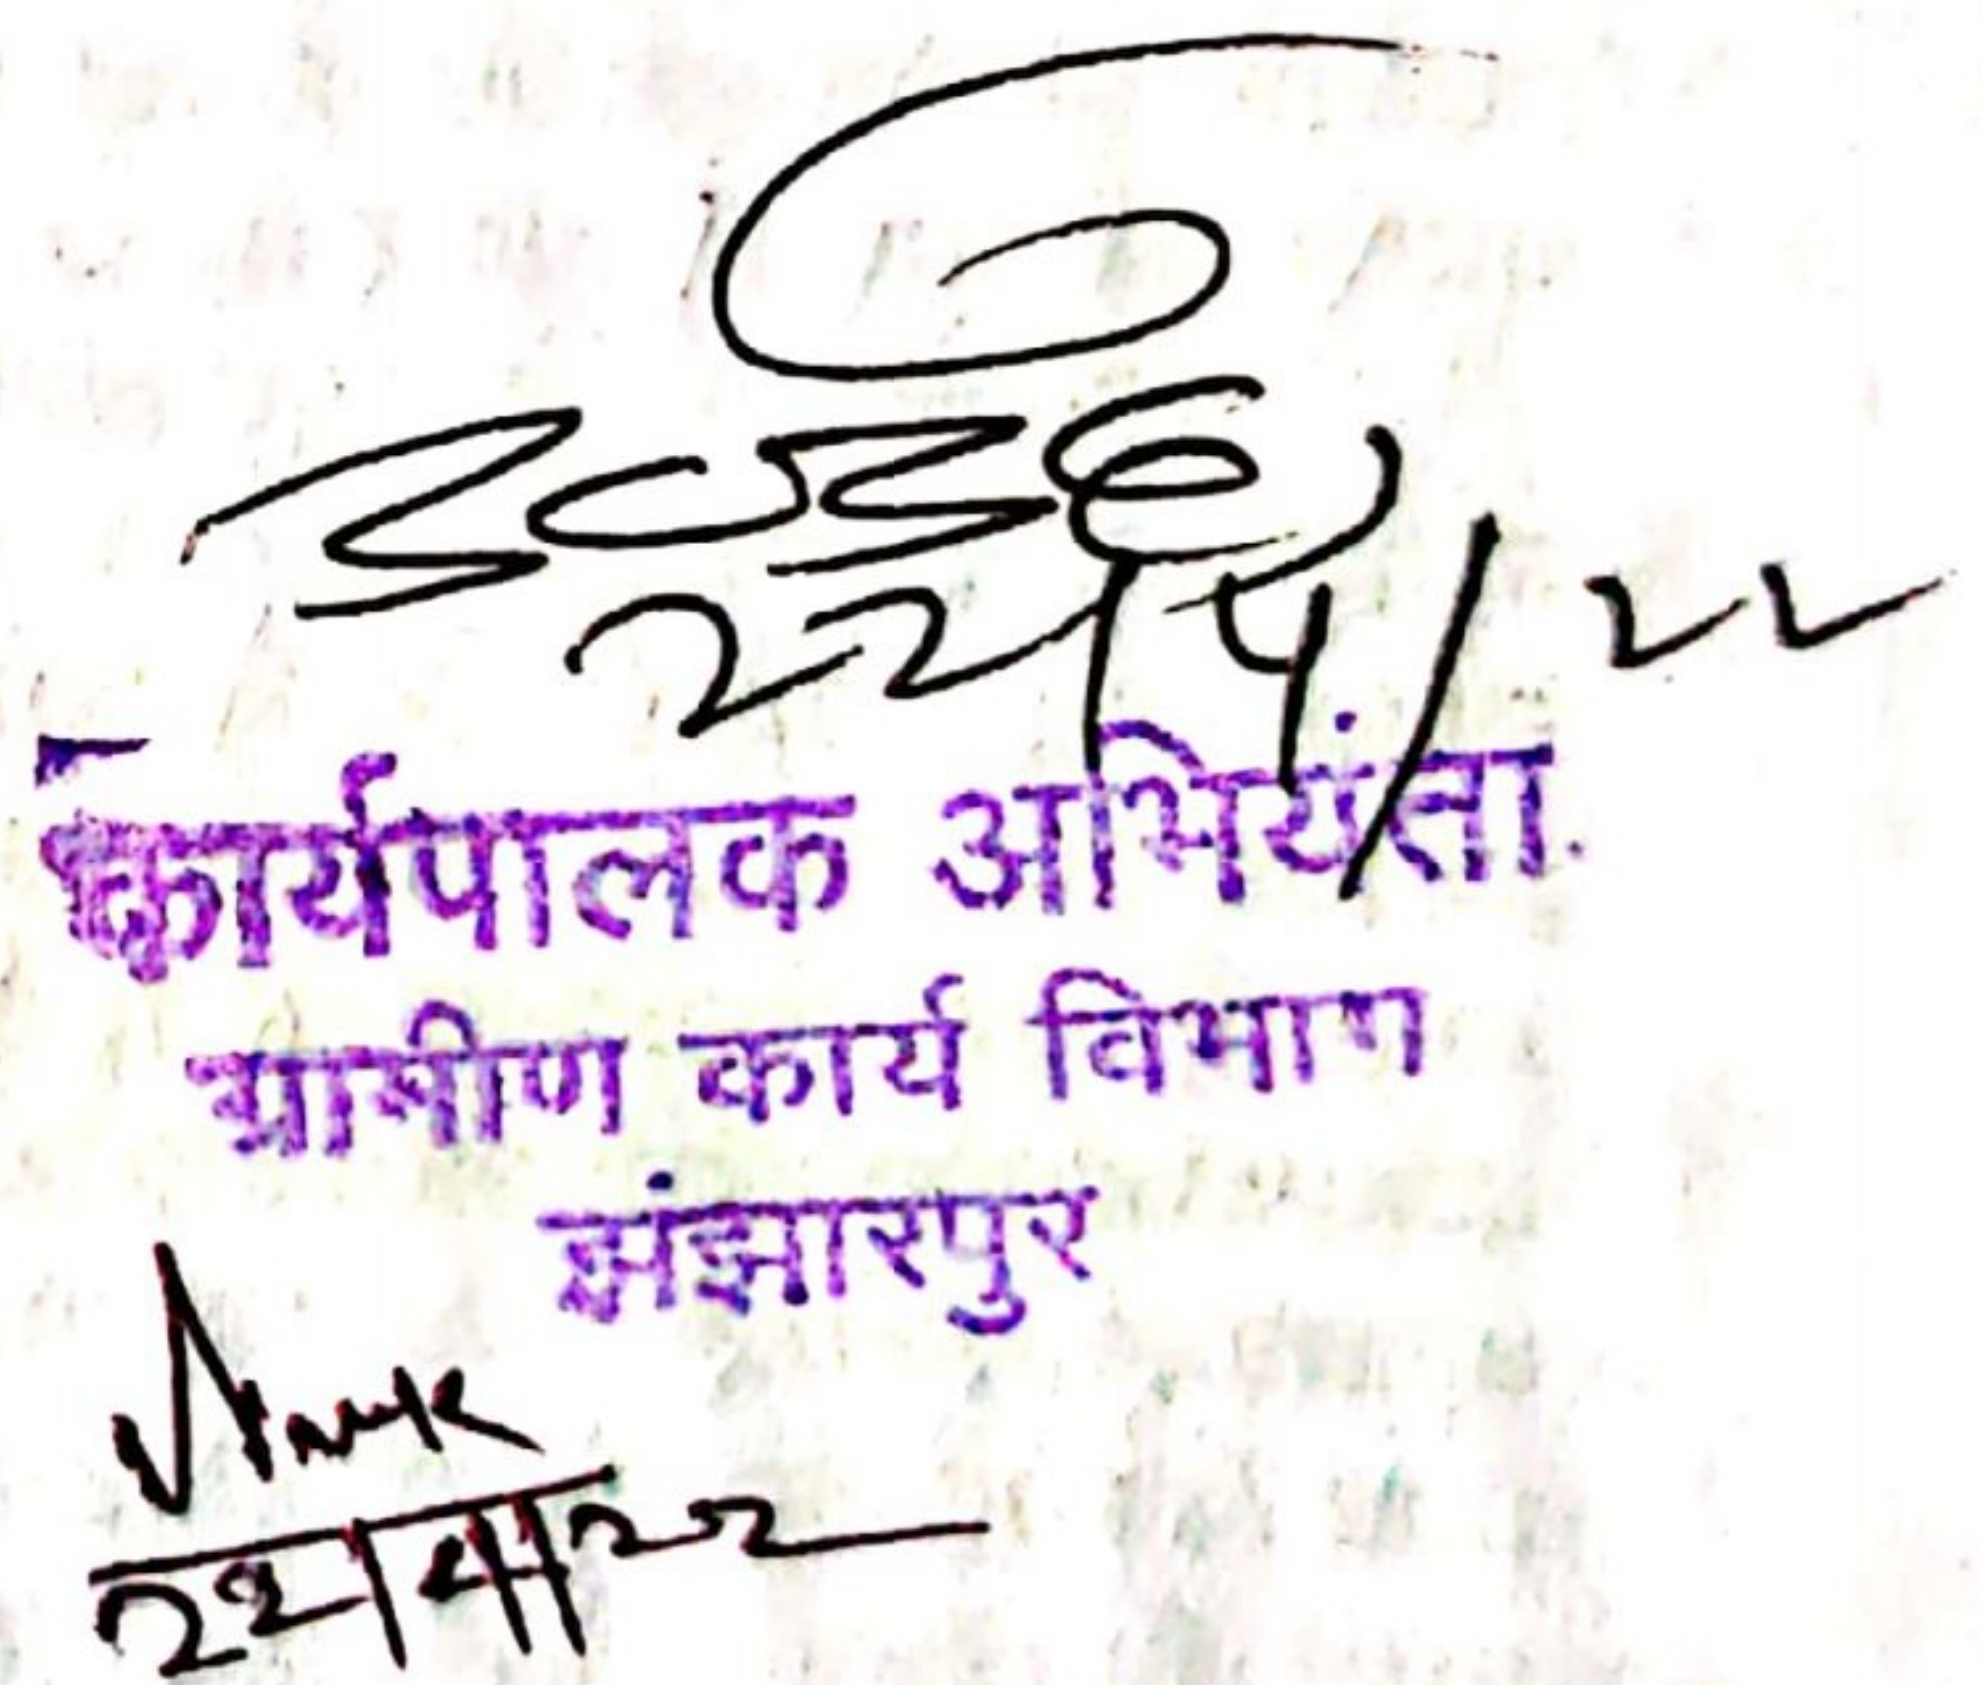 22/4/22
कार्यपालक अभियंता.
ग्रामीण कार्य विभाग
झंझारपुर
22/4/22